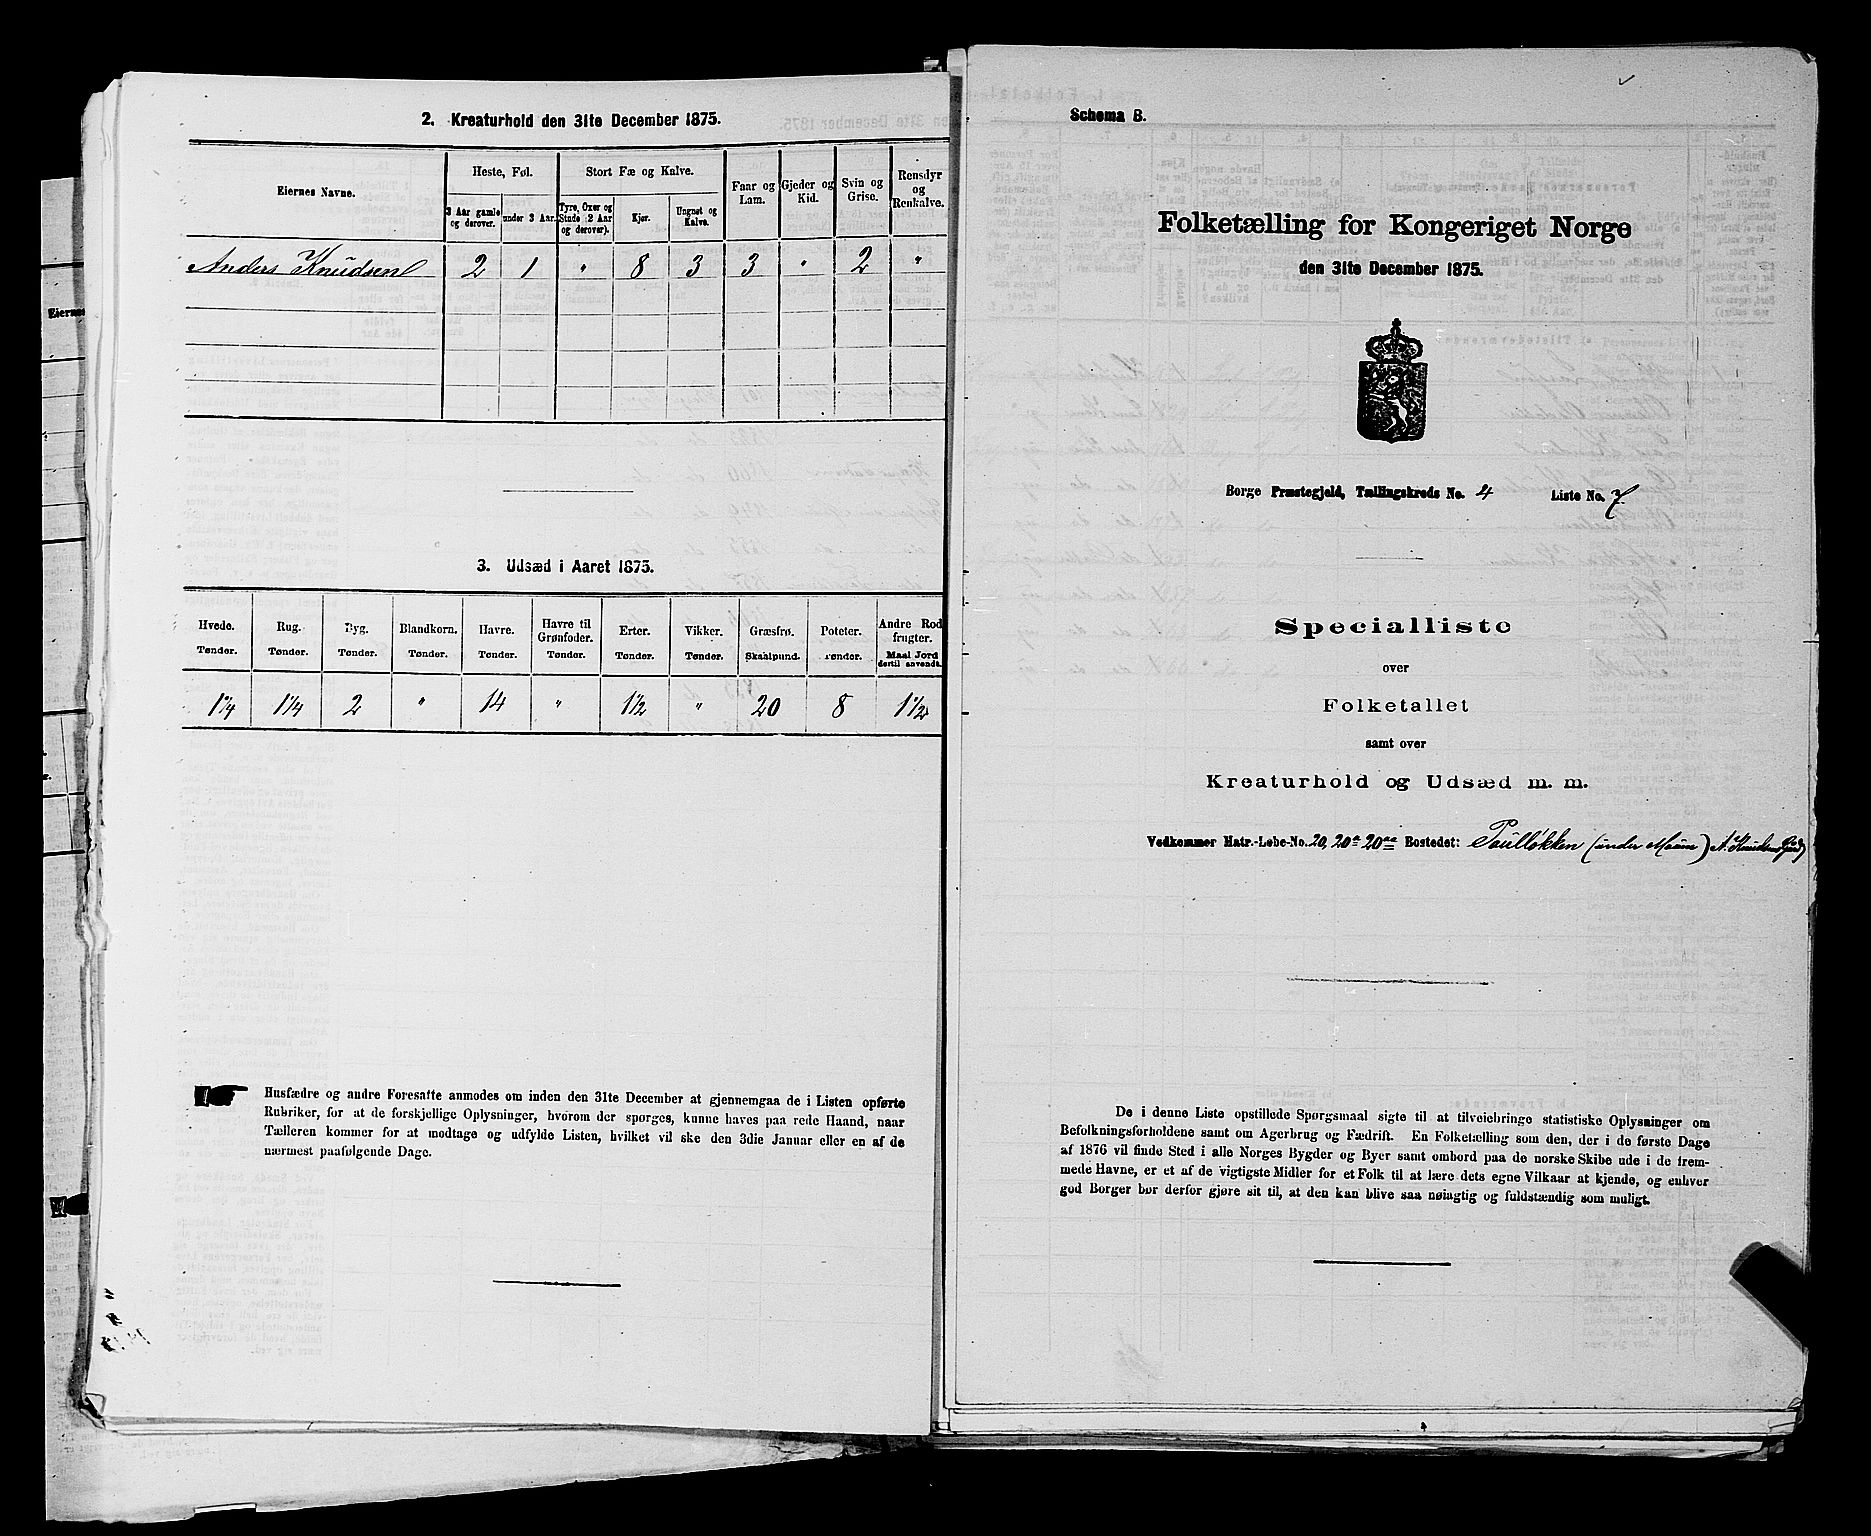 2. Kreaturhold den 31te December 1875.
Eiernes Navne.
Heste, Føl.
Stort Fæ og Kalve.
Faar og Lam.
Gjeder og Kid.
Svin og Grise.
Rensdyr og Renkalve.
3 Aar gamle og derover.
under 3 Aar.
Tyre, Oxer og Stude (2 Aar og derover).
Kjør.
Ungnøt og Kalve.
Anders Knudsen 2 1 " 8 3 3 " 2 "
3. Udsæd i Aaret 1875.
Hvede. Rug. Byg. Blandkorn. Havre. Havre til Grønfoder. Erter. Vikker. Græsfrø. Poteter. Andre Rodfrugter.
Tønder. Tønder. Tønder. Tønder. Tønder. Tønder. Tønder. Tønder. Skaalpund. Tønder. Maal Jord dertil anvendt.
1¼ 1¼ 2 " 14 " 1½ " 20 8 1½
Husfædre og andre Foresatte anmodes om inden den 31te December at gjennemgaa de i Listen opførte
Rubriker, for at de forskjellige Oplysninger, hvorom der spørges, kunne haves paa rede Haand, naar
Tælleren kommer for at modtage og udfylde Listen, hvilket vil ske den 3die Januar eller en af de
nærmest paafølgende Dage.
Schema B.
Folketælling for Kongeriget Norge
den 31te December 1875.
Borge Præstegjeld, Tællingskreds No. 4 Liste No. 7
Specialliste
over
Folketallet
samt over
Kreaturhold og Udsæd m. m.
Vedkommer Matr.-Løbe-No. 20, 20a 20aa Bostedet: Paulløkken (under Maum) A. Knudsens
De i denne Liste opstillede Spørgsmaal sigte til at tilveiebringe statistiske Oplysninger om
Befolkningsforholdene samt om Agerbrug og Fædrift. En Folketælling som den, der i de første Dage
af 1876 vil finde Sted i alle Norges Bygder og Byer samt ombord paa de norske Skibe ude i de frem-
mede Havne, er et af de vigtigste Midler for et Folk til at lære dets egne Vilkaar at kjende, og enhver
god Borger bør derfor gjøre sit til, at den kan blive saa nøiagtig og fuldstændig som muligt.